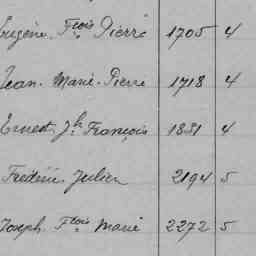 Eugène Fçois Pierre 1705 4
Jean Marie Pierre 1718 4
Ernest Jh François 1831 4
Frédéric Julien 2194 5
Joseph Fçois Marie 2272 5